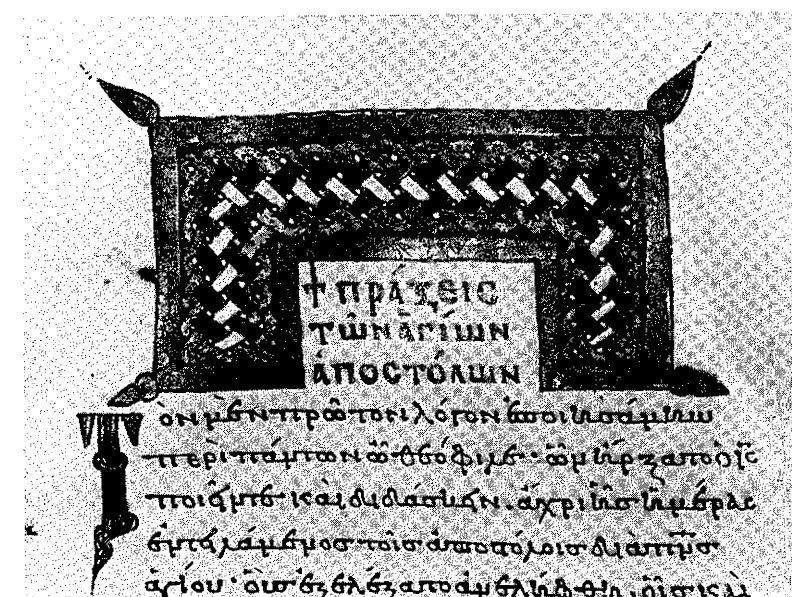 † πράξεις
τῶν ἁγίων
ἀποστόλων
Τὸν μὲν πρῶτον λόγον ἐποιησάμην
περὶ πάντων ὦ θεόφιλε· ὧν ἤρξατο ὁ ις
ποιεῖν τε καὶ διδάσκειν. ἄχρι ἧς ἡμέρας
ἐντειλάμενος τοῖς ἀποστόλοις διὰ πνς
ἁγίου· οὓς ἐξελέξατο ἀνελήφθη. οἷς καὶ